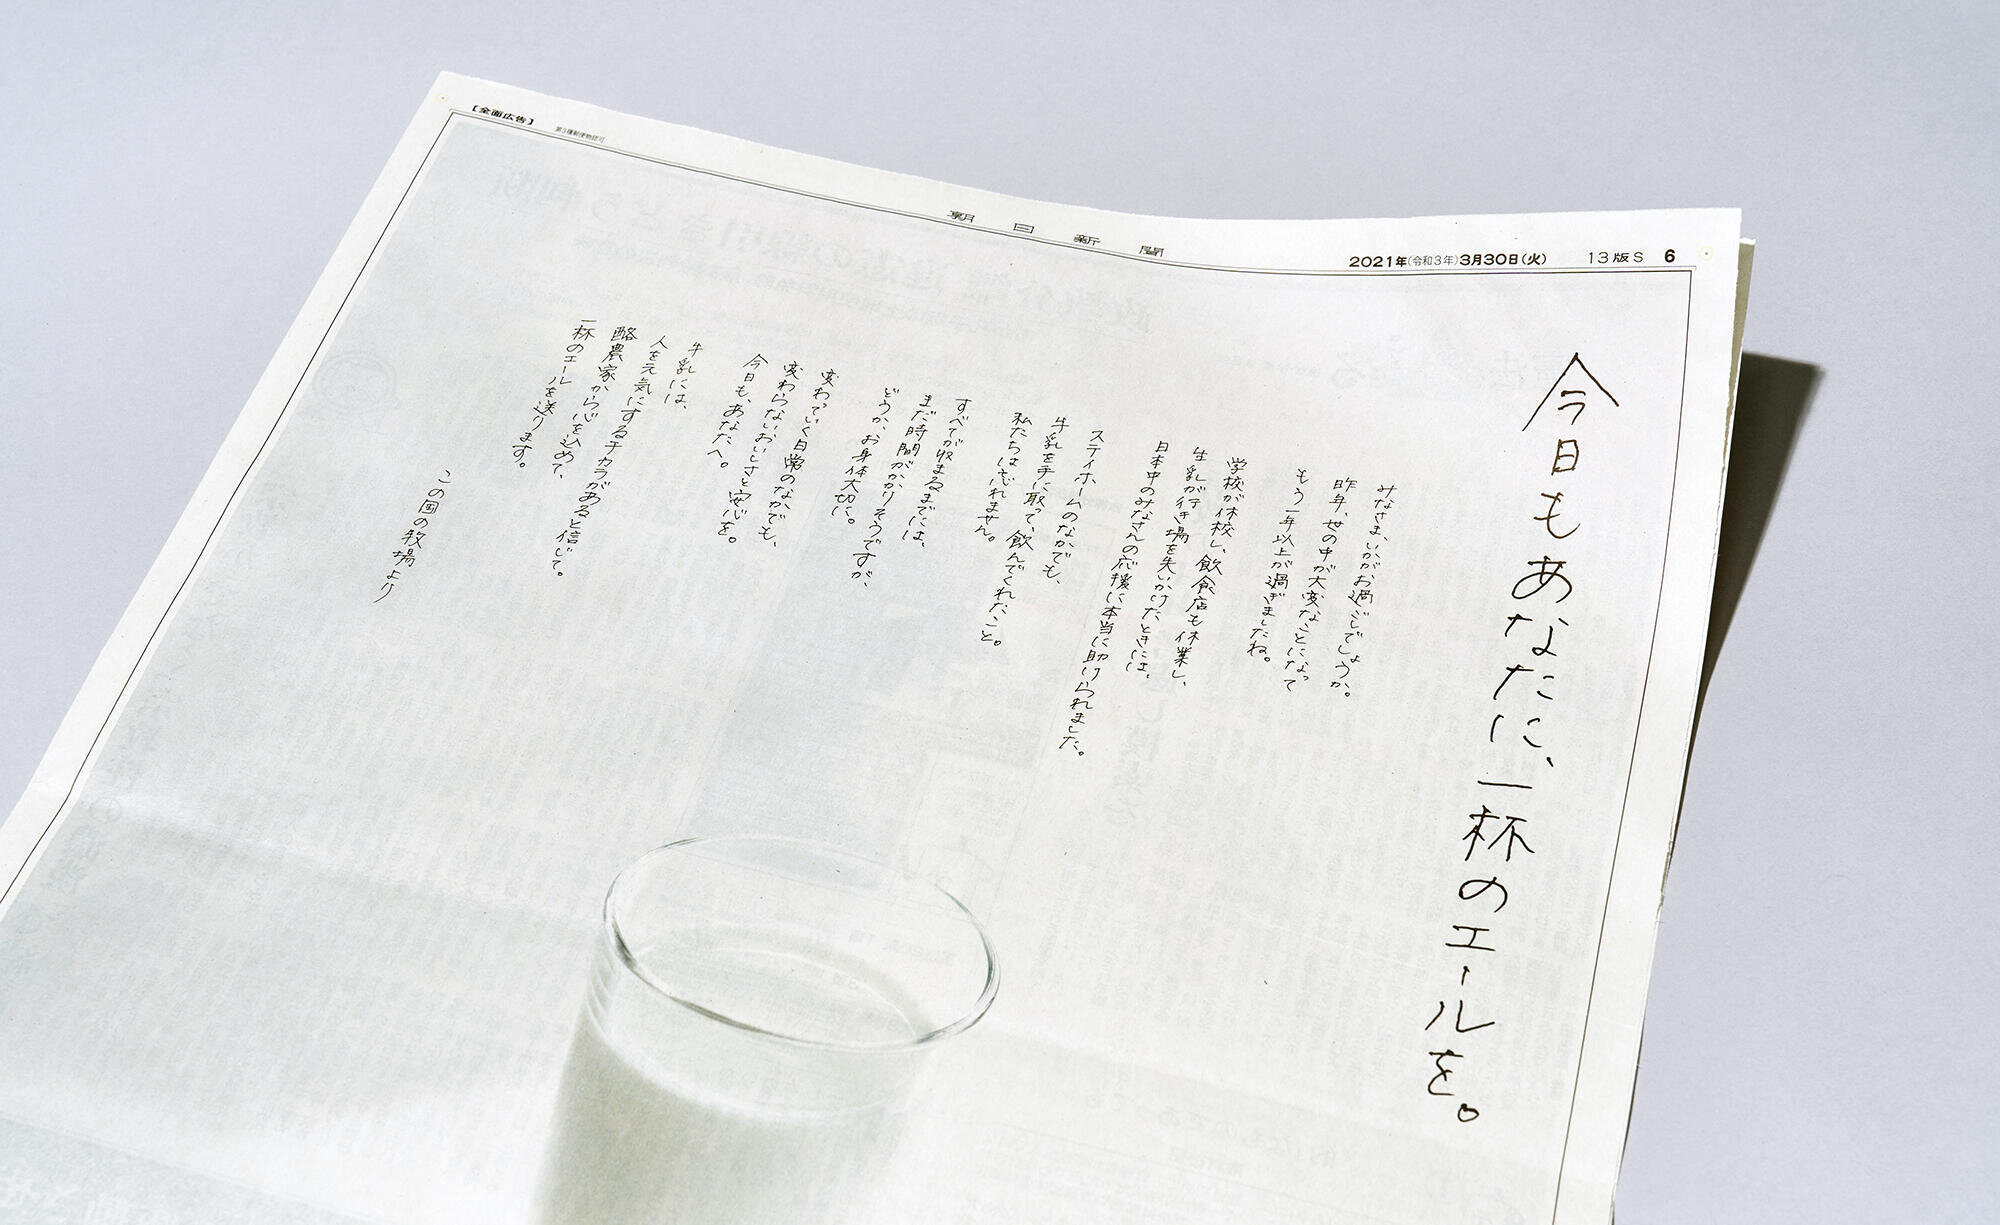 【全面広告】
第3種郵便物認可
朝日新聞
2021年(令和3年)3月30日(火)
13版S
6
今日もあなたに、一杯のエールを。
みなさま、いかがお過ごしでしょうか。
昨年、世の中が大変なことになって
もう一年以上が過ぎましたね。
学校が休校し、飲食店も休業し、
生乳が行き場を失いかけたときには、
日本中のみなさんの応援に本当に助けられました。
ステイホームのなかでも、
牛乳を手に取って、飲んでくれたこと。
私たちは忘れません。
すべてが収まるまでには、
まだ時間がかかりそうですが、
どうか、お身体大切に。
変わっていく日常のなかでも、
変わらないおいしさと安心を。
今日も、あなたへ。
牛乳には、
人を元気にするチカラがあると信じて。
酪農家から心を込めて、
一杯のエールを送ります。
この国の牧場より